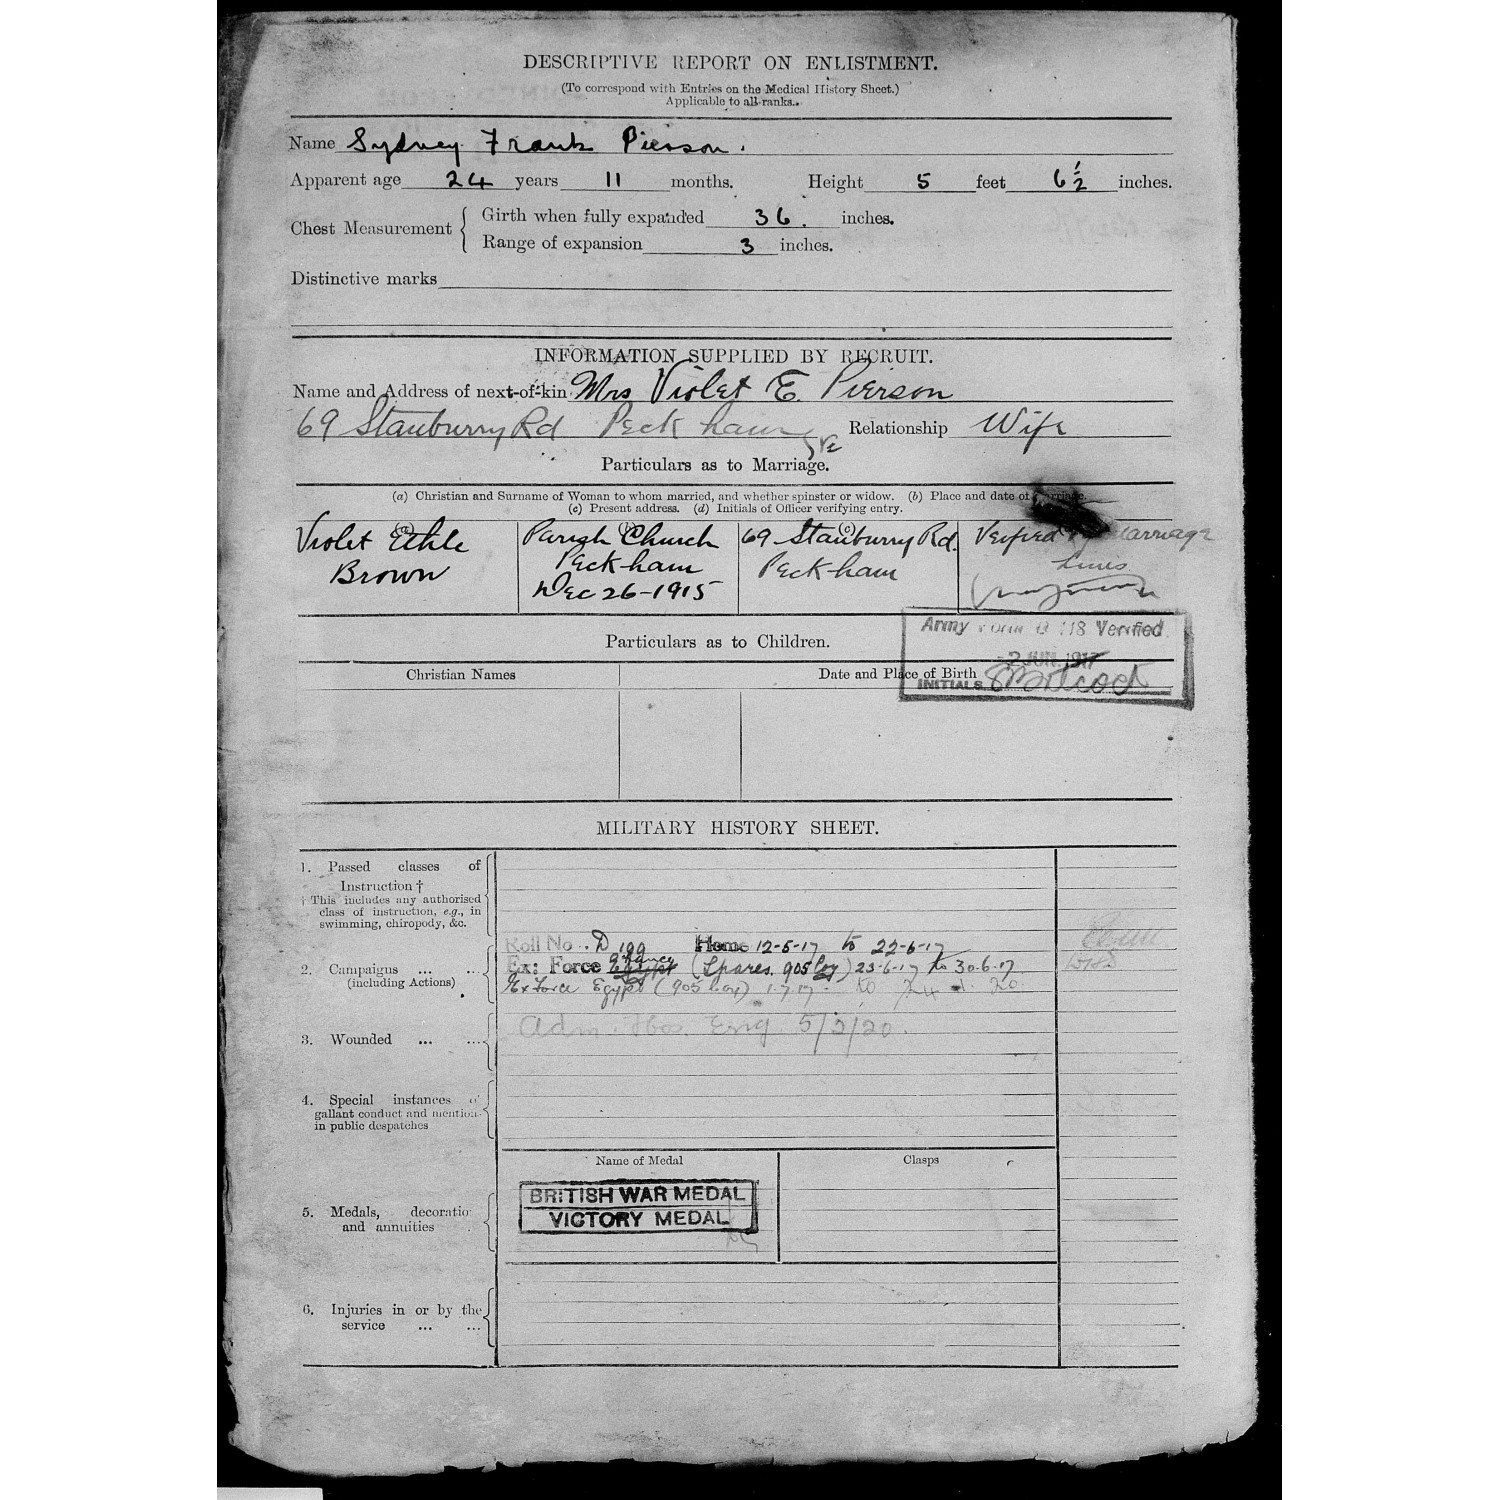 DESCRIPTIVE REPORT ON ENLISTMENT.
(To correspond with Entries on the Medical History Sheet.)
Applicable to all ranks.
Name Sydney Frank Pierson.
Apparent age 24 years 11 months. Height 5 feet 6 1/2 inches.
Chest Measurement { Girth when fully expanded 36. inches.
Range of expansion 3 inches.
Distinctive marks
INFORMATION SUPPLIED BY RECRUIT.
Name and Address of next-of-kin Mrs Violet E. Pierson
69 Stanburry Rd Peckham Relationship Wife
Particulars as to Marriage.
(a) Christian and Surname of Woman to whom married, and whether spinster or widow. (b) Place and date of marriage.
(c) Present address. (d) Initials of Officer verifying entry.
Violet Ethle (a) Parish Church (b) 69 Stanburry Rd. (c) Verified Marriage
Brown Peckham Peckham Lines
Dec 26-1915
Army Form B 118 Verified
Particulars as to Children.
-2 JUN. 1917
Christian Names Date and Place of Birth
INITIALS
MILITARY HISTORY SHEET.
1. Passed classes of
Instruction †
† This includes any authorised
class of instruction, e.g., in
swimming, chiropody, &c.
Roll No. D 199 Home 12-5-17 to 22-6-17
France
2. Campaigns ... ... Ex: Force Egypt (Spares. 905 Coy) 23-6-17 to 30.6.17
(including Actions) Ex Force Egypt (905 Coy) 1.7.17. to 24 1. 20.
Adm. Hos. Eng 5/2/20.
3. Wounded ... ...
4. Special instances of
gallant conduct and mention
in public despatches
Name of Medal Clasps
BRITISH WAR MEDAL
5. Medals, decoratio VICTORY MEDAL
and annuities
6. Injuries in or by the
service ... ...